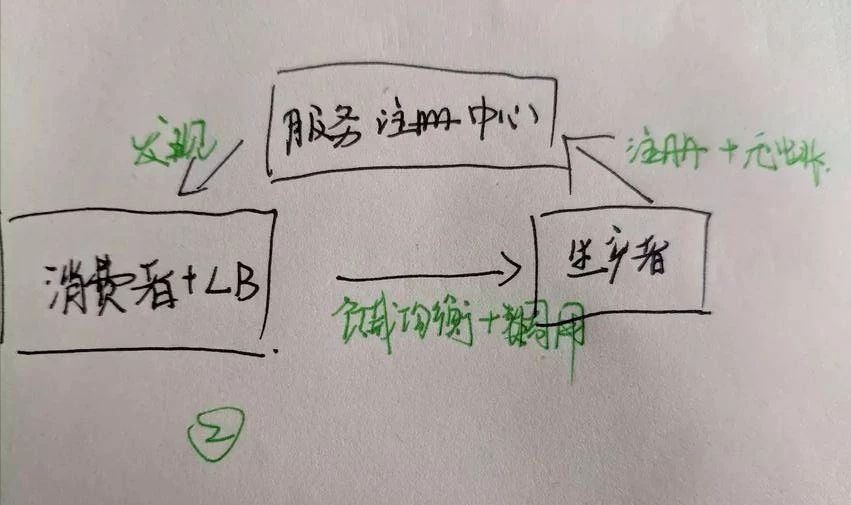 服务注册中心
发现
注册+
消费者+LB
生产者
负载均衡+调用
②